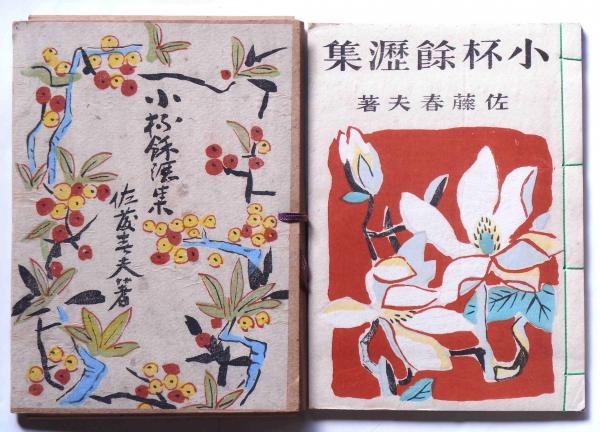 小杯餘瀝集
佐藤春夫著
集瀝餘杯小
著夫春藤佐